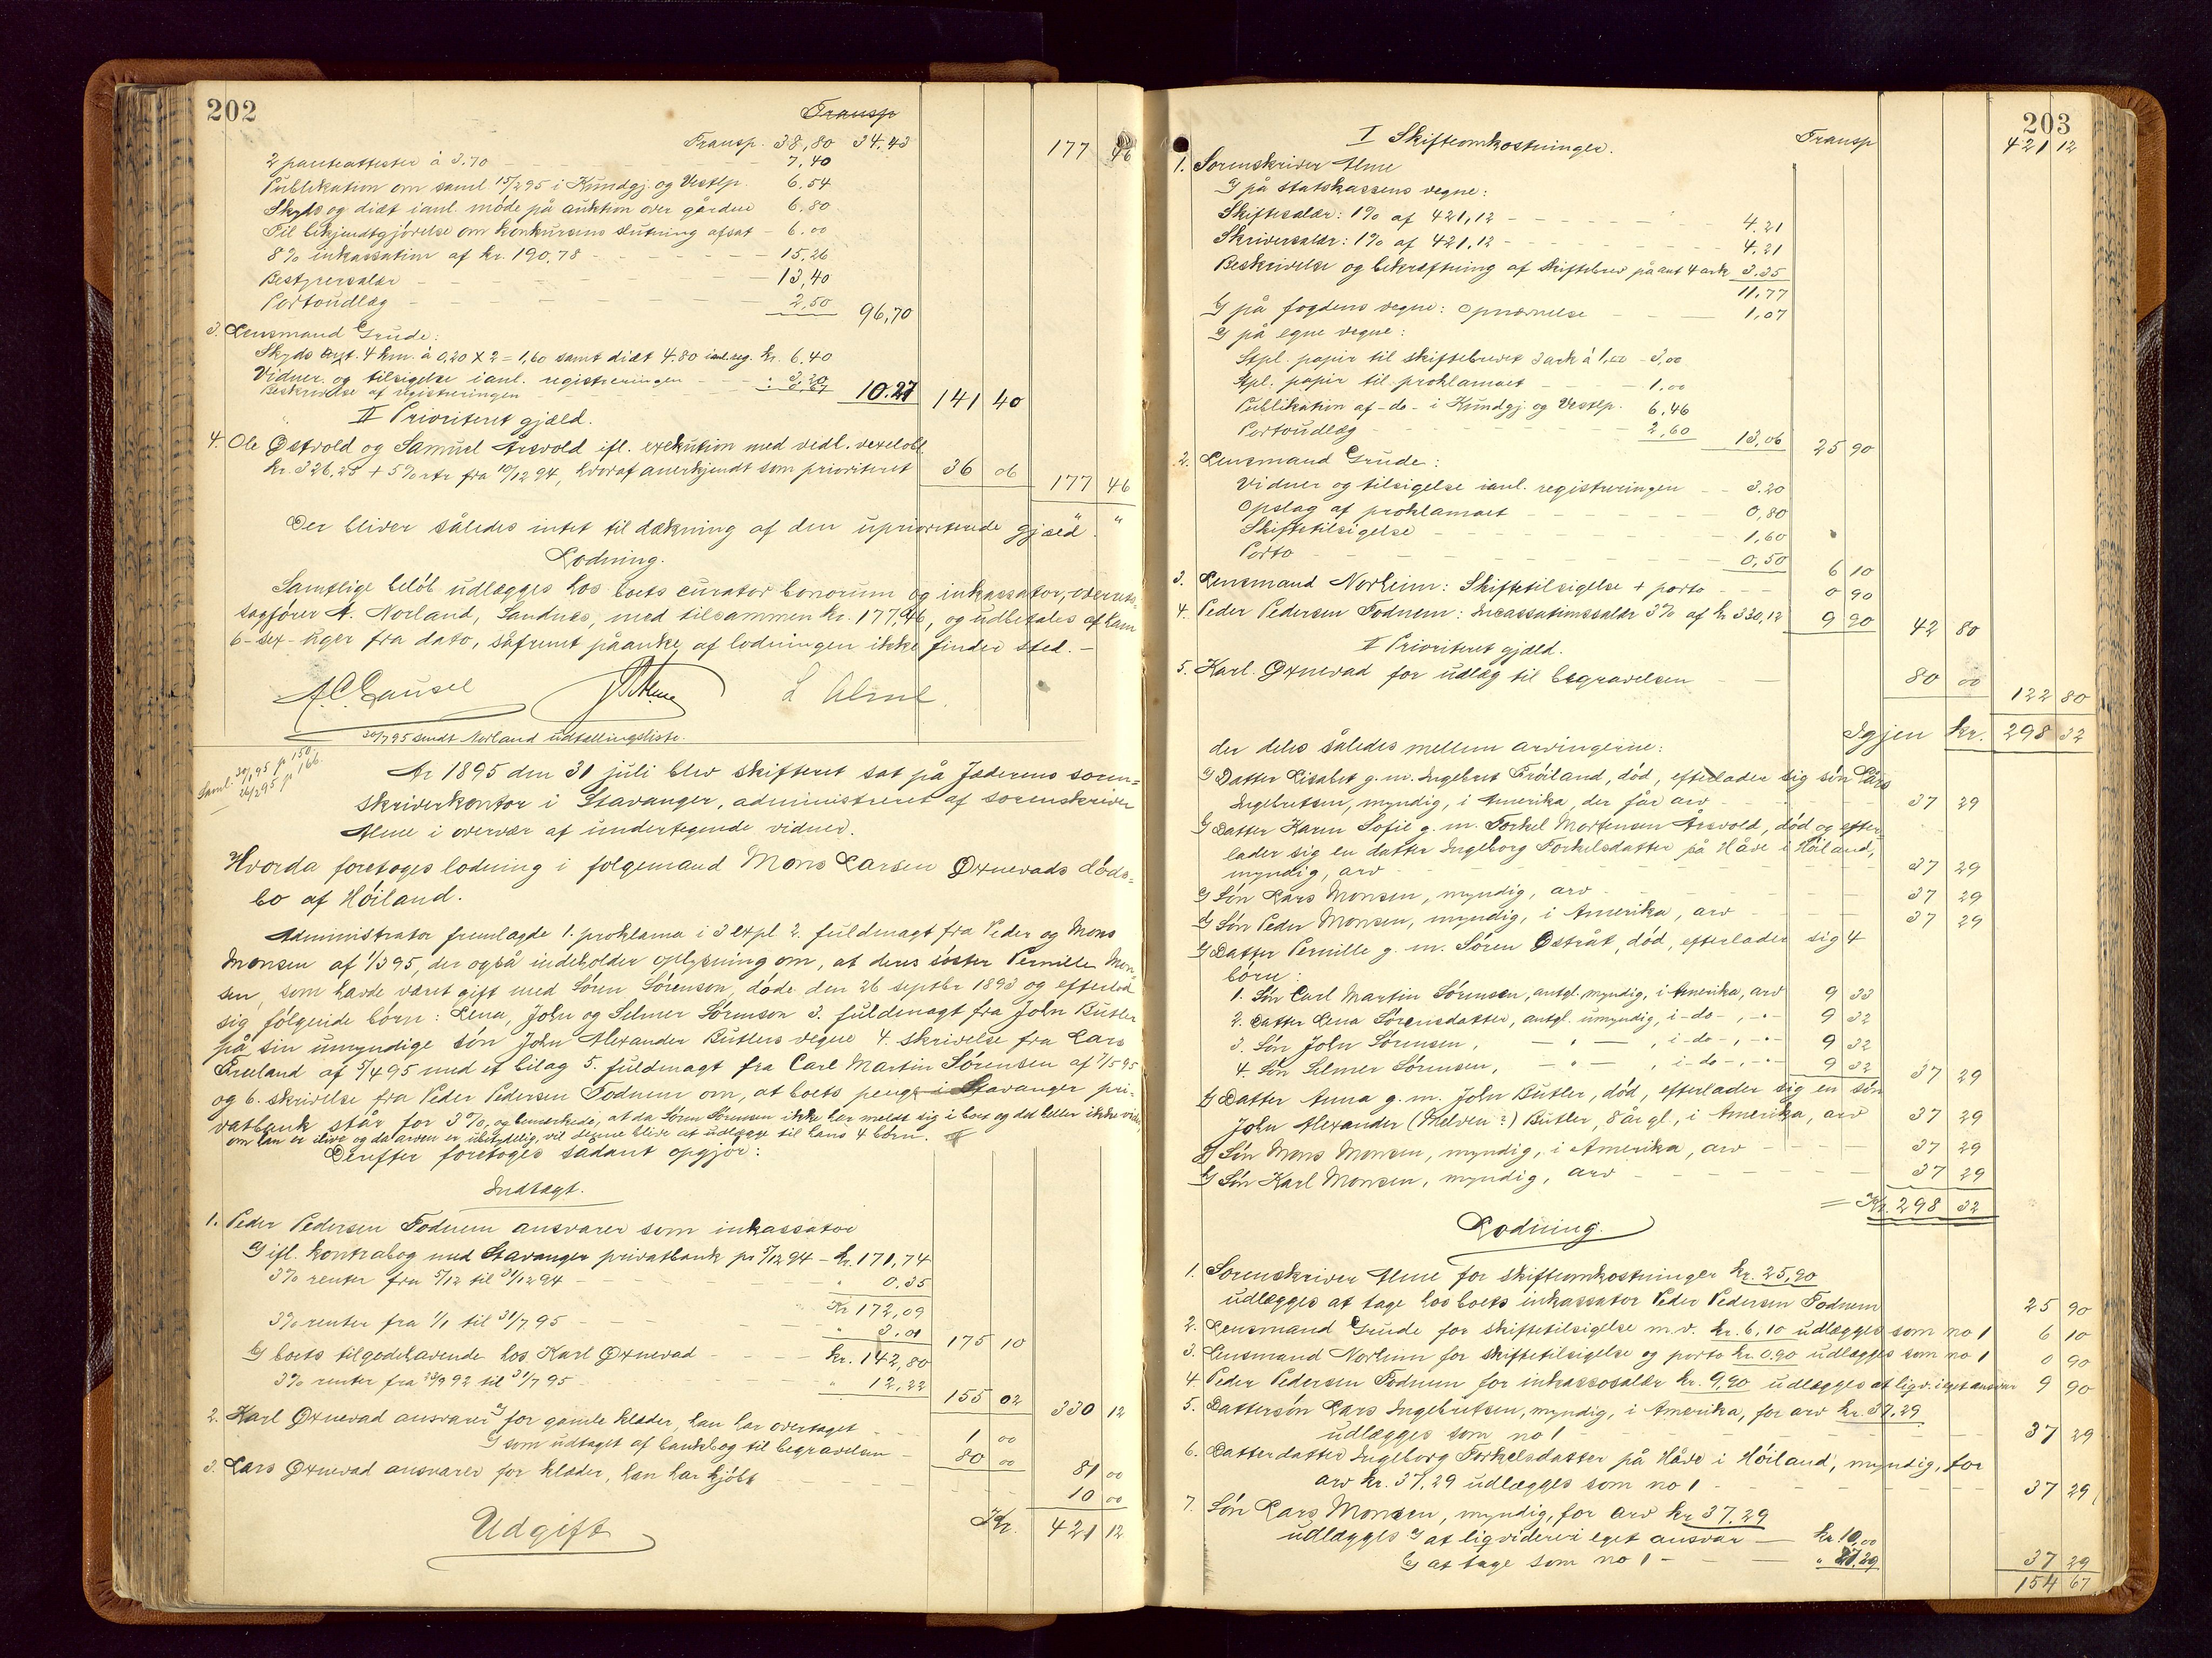 202
Transp
Transp. 38,80 34.43 177 46
2 panteattester à 3.70 - 7,40
Publikation om saml. 15/2 95 i Kundgj. og Vestlp. 6.54
Skyds og diæt ianl. møde på auktion over gården 6.80
Til bekjendtgjørelse om konkursens slutning afsat - 6.00
8% inkassation af kr. 190,78 - 15,26
Bestyrersalær - 13,40
Portoudlæg - 2,50 96,70
3. Lensmand Grude:
Skyds 4 km. à 0,20 x 2 = 1,60 samt diæt 4.80 ianl. reg. kr. 6,40
Vidner og tilsigelse ianl. registreringen - " 3,20
Beskrivelse af registreringen - 0,67 10.27 141 40
II Prioriteret gjæld.
4. Ole Østvold og Samuel Årsvold ifl. exekution med vedl. vexelobl.
kr. 326.25 + 5% rtr fra 10/12 94, hvoraf anerkjendt som prioriteret 36 06 177 46
Der bliver således intet til dækning af den uprioriterede gjæld. " "
Lodning.
Samtlige beløb udlægges hos boets curator bonorum og inkassator, overrets-
sagfører A. Norland, Sandnes, med tilsammen kr. 177,46, og udbetales af ham
6 - sex - uger fra dato, såfremt påanke af lodningen ikke finder sted. -
A. C. Gausel Alme L Alme
30/7 95 sendt Norland udtællingsliste.
Saml. 30/1 95 p 150
26/2 95 p 166.
År 1895 den 31 juli blev skifteret sat på Jæderens soren-
skriverkontor i Stavanger, administreret af sorenskriver
Alme i overvær af undertegnede vidner.
Hvorda foretoges lodning i følgemand Mons Larsen Øxnevads døds-
bo af Høiland.
Administrator fremlagde 1. proklama i 3 expl. 2. fuldmagt fra Peder og Mons
Monsen af 1/3 95, der også indeholder oplysning om, at deres søster Pernille Mon-
sen, som havde været gift med Søren Sørenson, døde den 26 septbr 1893 og efterlod
sig følgende børn: Lena, John og Selmer Sørenson 3. fuldmagt fra John Butler
på sin umyndige søn John Alexander Butlers vegne 4. skrivelse fra Lars
Freeland af 5/4 95 med et bilag 5. fuldmagt fra Carl Martin Sørensen af 7/5 95
og 6. skrivelse fra Peder Pedersen Fodnem om, at boets penge i Stavanger pri-
vatbank står for 3%, og bemærkede, at da Søren Sørensen ikke har meldt sig i boet og det heller ikke vides,
om han er ilive og da arven er ubetydelig, vil denne blive at udlægge til hans 4 børn.
Derefter foretoges sådant opgjør:
Indtægt.
1. Peder Pedersen Fodnem ansvarer som inkassator
a) ifl. kontrabog med Stavanger privatbank pr 5/12 94 - kr. 171,74
3% renter fra 5/12 til 31/12 94 - " 0.35
Kr. 172,09
3% renter fra 1/1 til 31/7 95 - " 3.01 175 10
b) boets tilgodehavende hos Karl Øxnevad - kr. 142,80
3% renter fra 23/9 92 til 31/7 95 - " 12,22 155 02 330 12
2. Karl Øxnevad ansvarer a) for gamle klæder, han har overtaget - 1 00
b) som udtaget af bankbog til begravelsen - 80 00 81 00
3. Lars Øxnevad ansvarer for klæder, han har kjøbt - 10 00
Kr. 421 12
Udgift
203
I Skifteomkostninger. Transp 421 12
1. Sorenskriver Alme
a) på statskassens vegne:
Skiftesalær: 1% af 421,12 - 4.21
Skriversalær: 1% af 421.12 - 4.21
Beskrivelse og bekræftning af skiftebrev på ant 4 ark 3.35
11.77
b) på fogdens vegne: opnævnelse - 1,07
c) på egne vegne:
Stpl. papir til skiftebrevet 3 ark à 1,00 - 3,00
Stpl. papir til proklamaet - 1.00
Publikation af - do - i Kundgj. og Vestlp. 6,46
Portoudlæg - 2,60 13,06 25 90
2. Lensmand Grude:
Vidner og tilsigelse ianl. registreringen - 3.20
Opslag af proklamaet - 0,80
Skiftetilsigelse - 1,60
Porto - 0,50 6 10
3. Lensmand Norheim: Skiftetilsigelse + porto - 0 90
4. Peder Pedersen Fodnem: Incassationssalær 3% af kr 330,12 9 90 42 80
II Prioriteret gjæld.
5. Karl Øxnevad for udlæg til begravelsen - 80 00 122 80
Igjen kr. 298 32
der deles således mellem arvingerne:
a) Datter Lisabet g. m. Ingebret Frøiland, død, efterlader sig søn Lars
Ingebretsen, myndig, i Amerika, der får arv - 37 29
b) Datter Karen Sofie g. m. Torkel Mortensen Årsvold, død og efter-
lader sig en datter Ingeborg Torkelsdatter på Håve i Høiland,
myndig, arv - 37 29
c) Søn Lars Monsen, myndig, arv - 37 29
d) Søn Peder Monsen, myndig, i Amerika, arv - 37 29
e) Datter Pernille g. m. Søren Østråt, død, efterlader sig 4
børn:
1. Søn Carl Martin Sørensen, antgl. myndig, i Amerika, arv 9 33
2. Datter Lena Sørensdatter, antgl. umyndig, i - do -, - " - 9 32
3. Søn John Sørensen, - " - , i - do -, - " - 9 32
4. Søn Selmer Sørensen, - " - , i - do -, - " - 9 32 37 29
f) Datter Anna g. m. John Butler, død, efterlader sig en søn
John Alexander (Melven?) Butler, 8 år gl., i Amerika, arv 37 29
g) Søn Mons Monsen, myndig, i Amerika, arv - 37 29
h) Søn Karl Monsen, myndig, arv - 37 29
= Kr. 298 32
Lodning.
1. Sorenskriver Alme for skifteomkostninger kr. 25,90
udlægges at tage hos boets inkassator Peder Pedersen Fodnem 25 90
2. Lensmand Grude for skiftetilsigelse m. v. kr. 6,10 udlægges som no 1 6 10
3. Lensmand Norheim for skiftetilsigelse og porto kr. 0.90 udlægges som no 1 0 90
4. Peder Pedersen Fodnem for inkassosalær kr. 9,90 udlægges at liqv. i eget ansvar 9 90
5. Dattersøn Lars Ingebretsen, myndig, i Amerika, for arv kr. 37,29
udlægges som no 1 - 37 29
6. Datterdatter Ingeborg Torkelsdatter på Håve i Høiland, myndig, for
arv kr. 37.29 udlægges som no 1 - 37 29
7. Søn Lars Monsen, myndig, for arv kr 37,29
udlægges a) at liqvidere i eget ansvar - kr. 10,00
b) at tage som no 1 - " 27,29 37 29
154 67